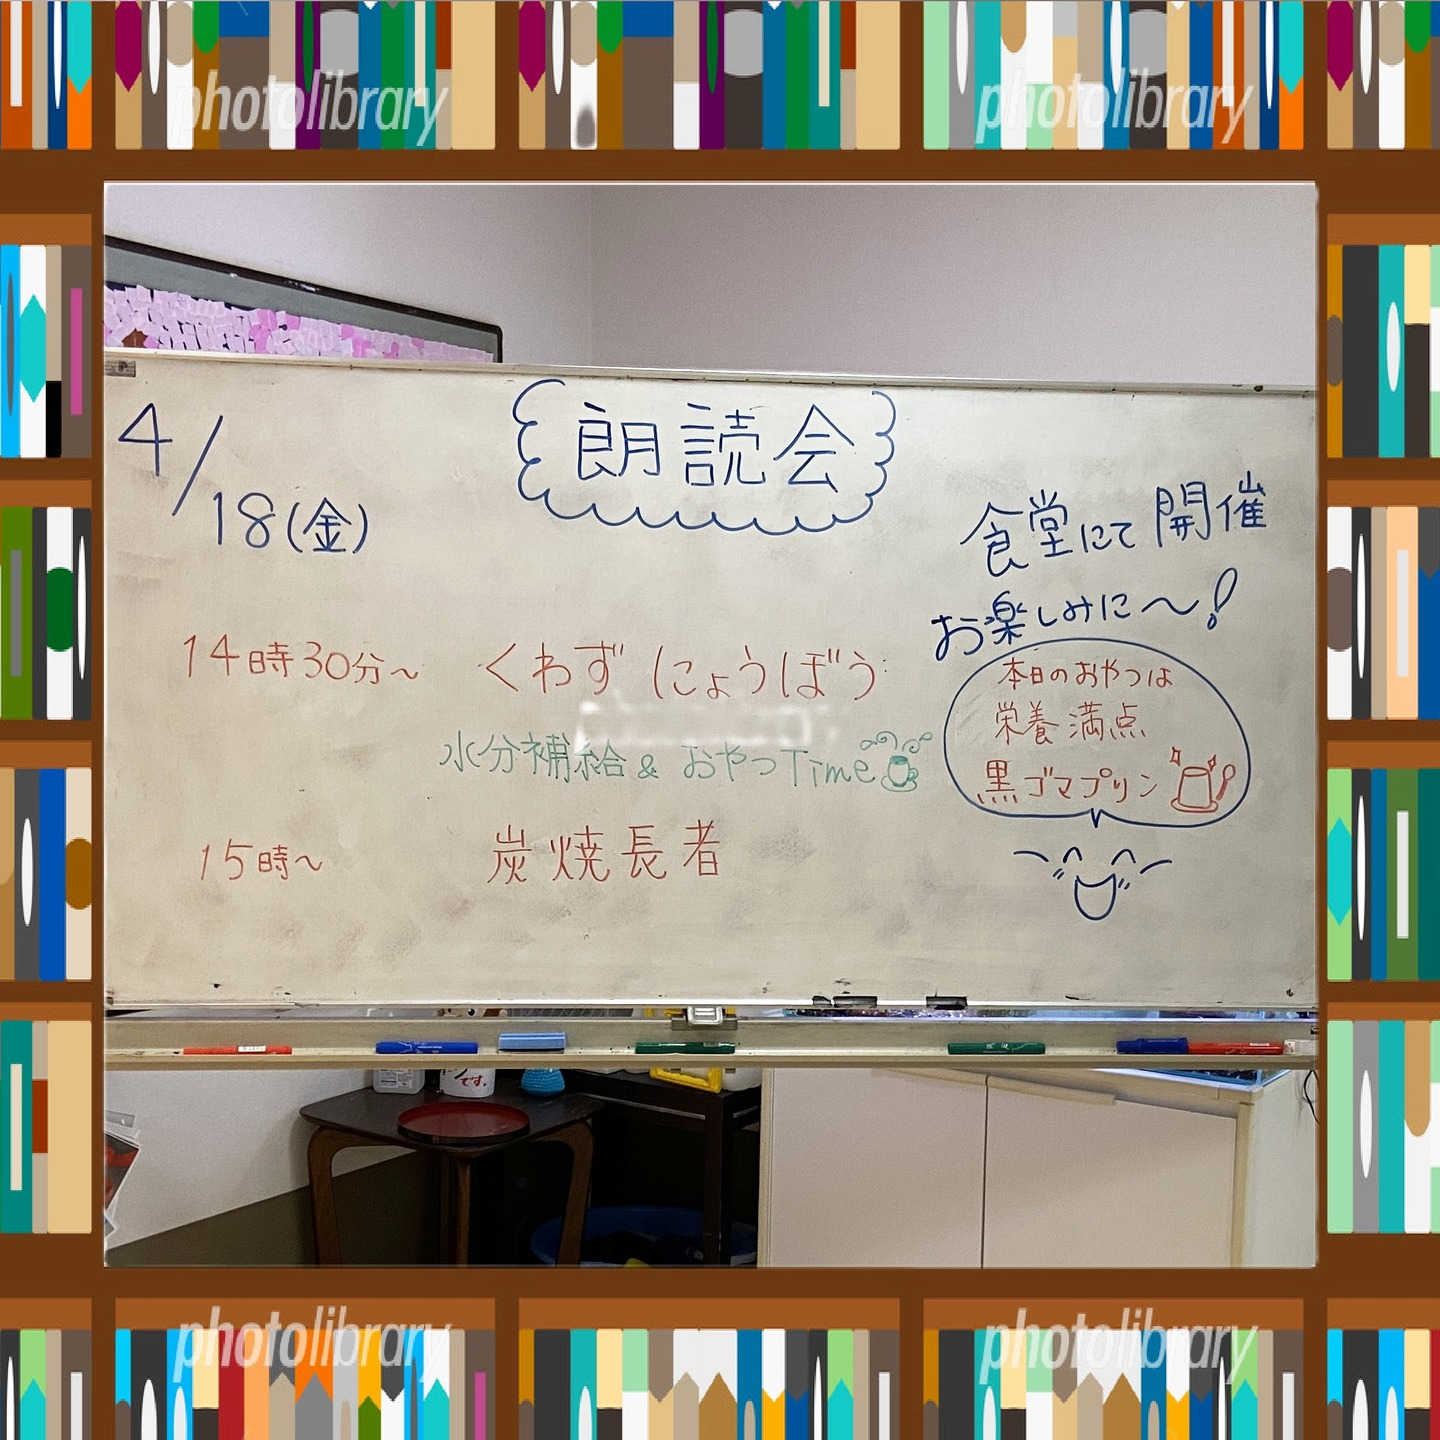 photolibrary
photolibrary
朗読会
4/18(金)
食堂にて開催
お楽しみに～!
14時30分～ くわず にょうぼう
本日のおやつは
栄養満点
黒ゴマプリン
水分補給 & おやつTime
15時～ 炭焼長者
です。
photolibrary
photolibrary